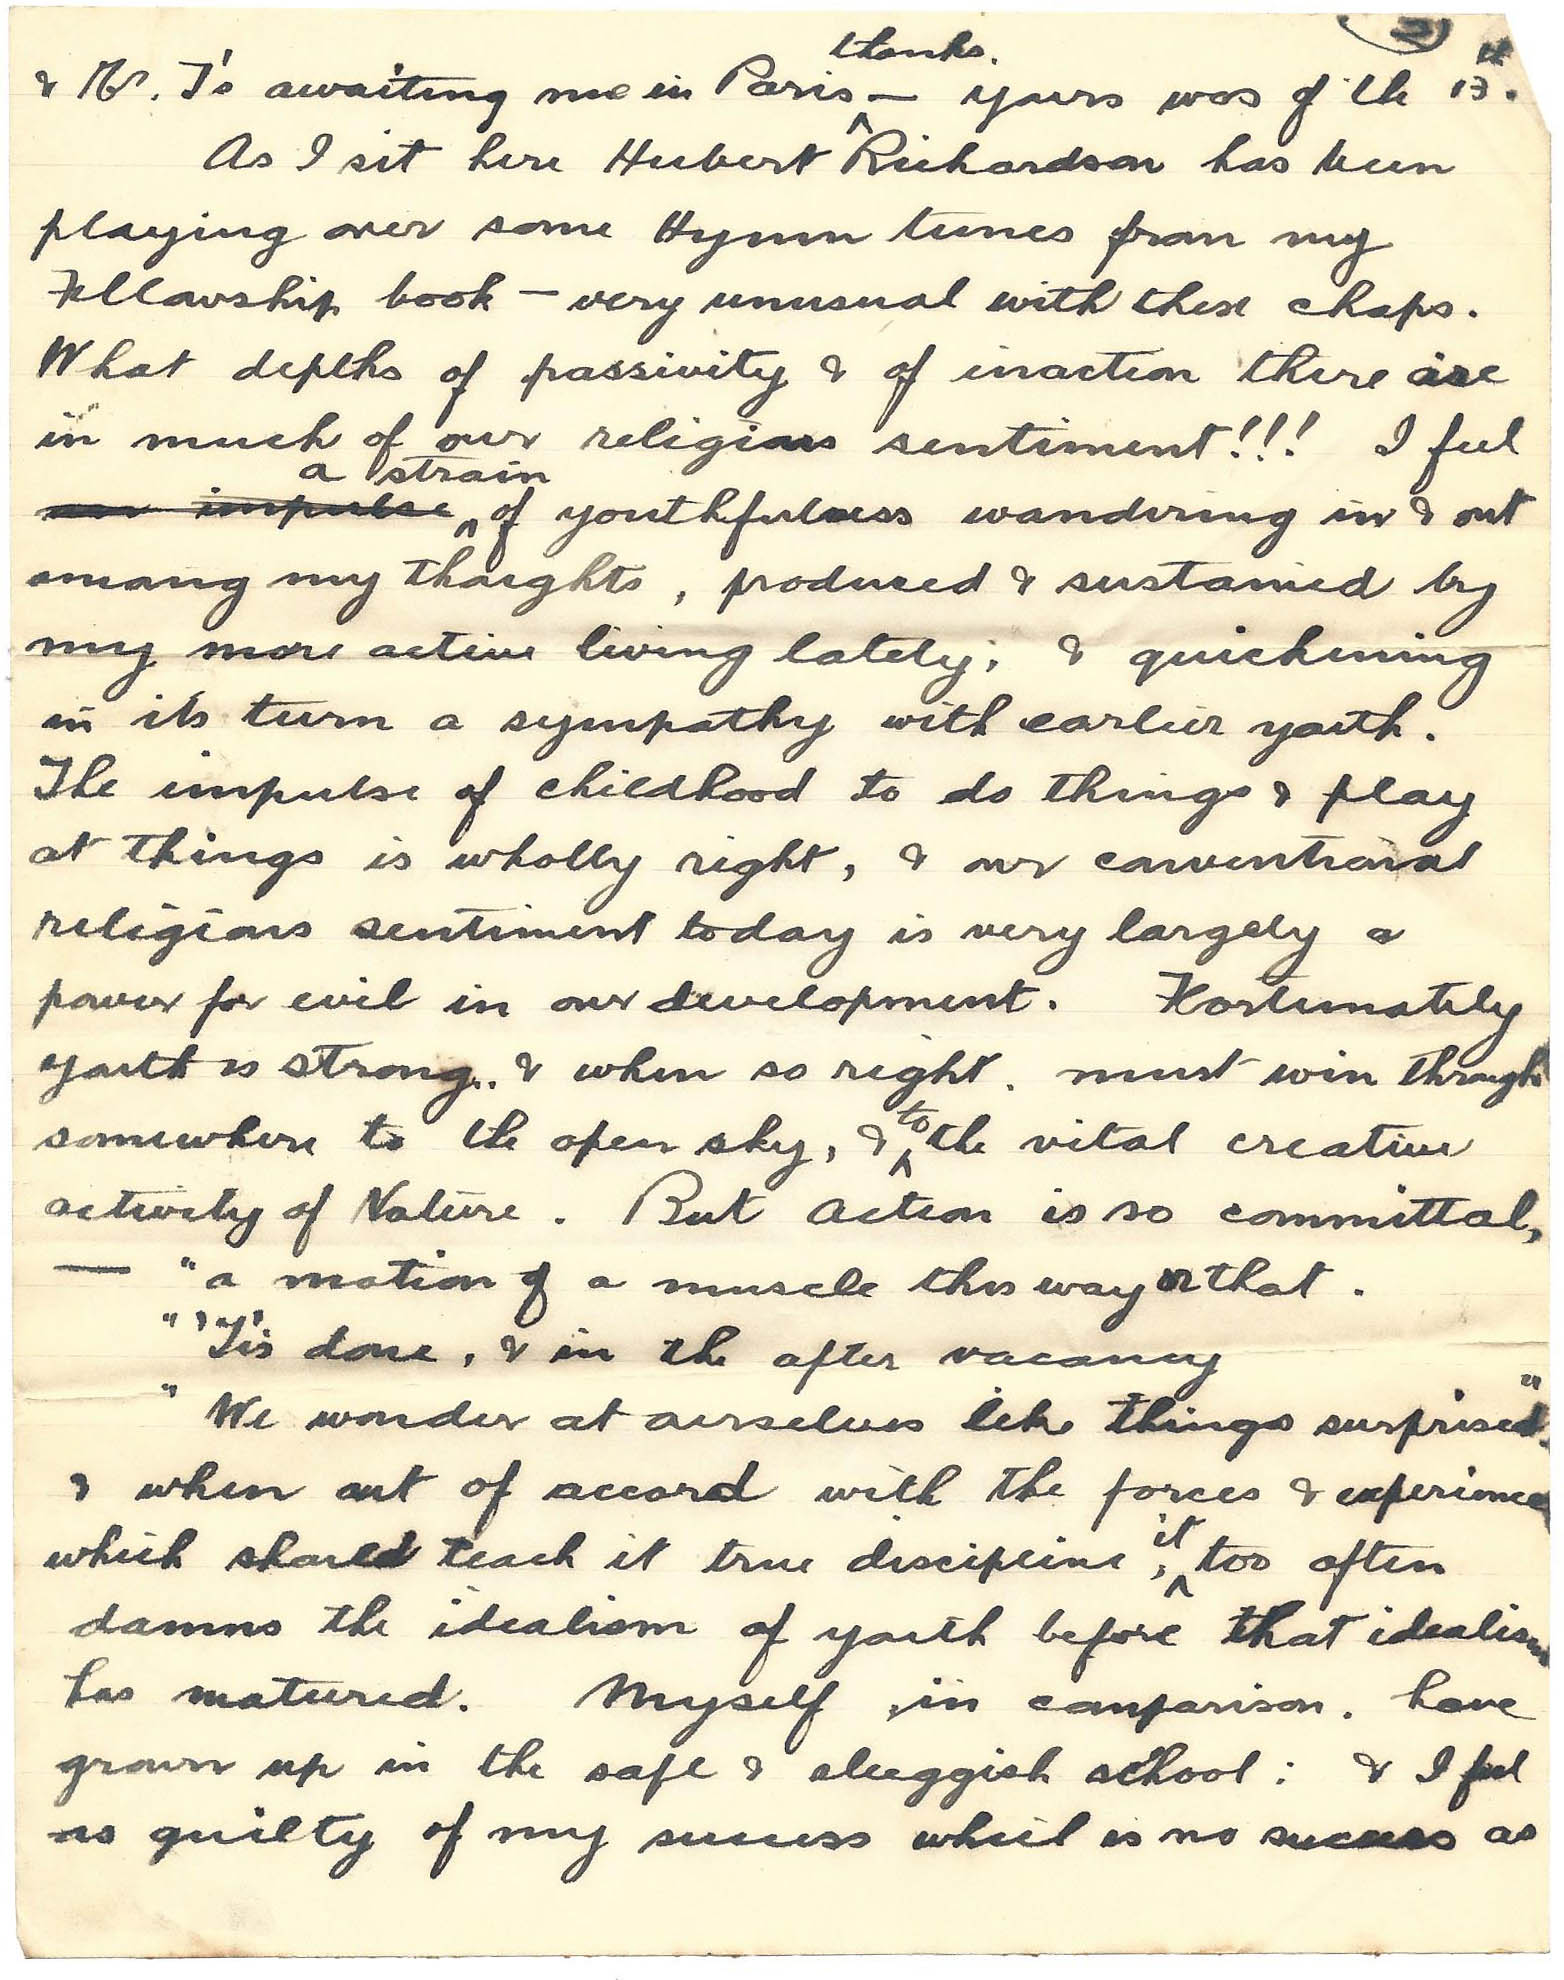 & Mr. T's awaiting me in Paris thanks. — yours was of the 13th.
As I sit here Hubert Richardson has been
playing over some Hymn tunes from my
Fellowship book — very unusual with these chaps.
What depths of passivity & of inaction there are
in much of our religious sentiment!!! I feel
an impulse a strain of youthfulness wandering in & out
among my thoughts, produced & sustained by
my more active living lately, & quickening
in its turn a sympathy with earlier youth.
The impulse of childhood to do things & play
at things is wholly right, & our conventional
religious sentiment today is very largely a
power for evil in our development. Fortunately
youth is strong, & when so right, must win through
somewhere to the open sky, & to the vital creative
activity of Nature. But action is so committal,
— "a motion of a muscle this way or that.
" 'Tis done, & in the after vacancy
" We wonder at ourselves like things surprised"
& when out of accord with the forces & experience
which should teach it true discipline, it too often
damns the idealism of youth before that idealism
has matured. Myself, in comparison, have
grown up in the safe & sluggish school: & I feel
as guilty of my success which is no success as